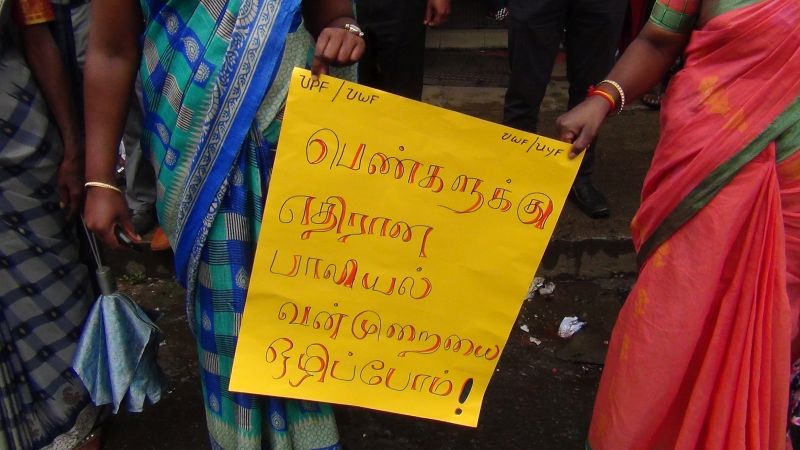 UPF/UWF
UWF/UYF
பெண்களுக்கு
எதிரான
பாலியல்
வன்முறையை
ஒழிப்போம்!